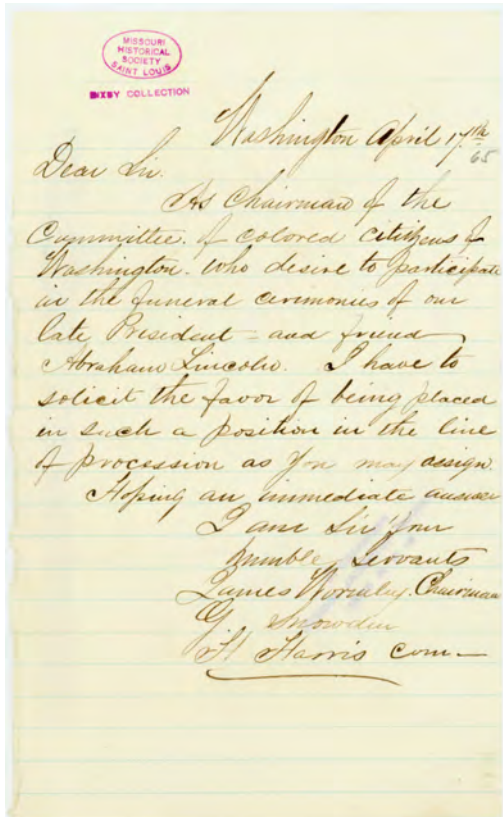 MISSOURI
HISTORICAL
SOCIETY
SAINT LOUIS
BIXBY COLLECTION
Washington April 17th
65
Dear Sir.
As Chairman of the
Committee. of colored citizens of
Washington. who desire to participate
in the funeral ceremonies of our
late President - and friend
Abraham Lincoln. I have to
solicit the favor of being placed
in such a position in the line
of procession as you may assign.
Hoping an immediate answer
I am Sir Your
humble Servants
James Wormley. Chairman
G. Snowden
H Harris com—